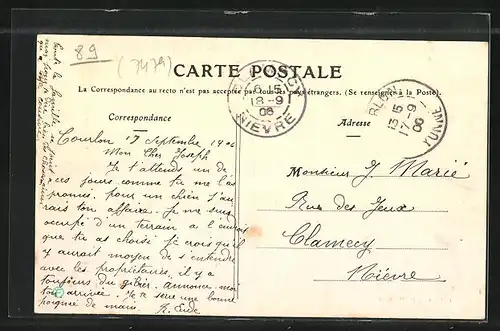 89
(7479)
CARTE POSTALE
La Correspondance au recto n'est pas acceptée par tous les pays étrangers. (Se renseigner à la Poste).
Correspondance
Adresse
6 15
18-9
06
NIEVRE
15
17-9
06
YONNE
Courlon 17 Septembre 1906
Mon Cher Joseph
Je t'attends un de
ces jours comme tu me l'as
promis, pour un chien j'au
rais ton affaire. Je me suis
occupé d'un terrain a l'endroit
que tu as choisi je crois qu'il
y aurait moyen de s'entendre
avec les propriétaires, il y a
toujours du gibier, annonce moi
ton arrivée. Je te serre une bonne
poignée de main.
Monsieur J. Marié
Rue des Jeux
Clamecy
Nièvre
Toute la famille se joint à